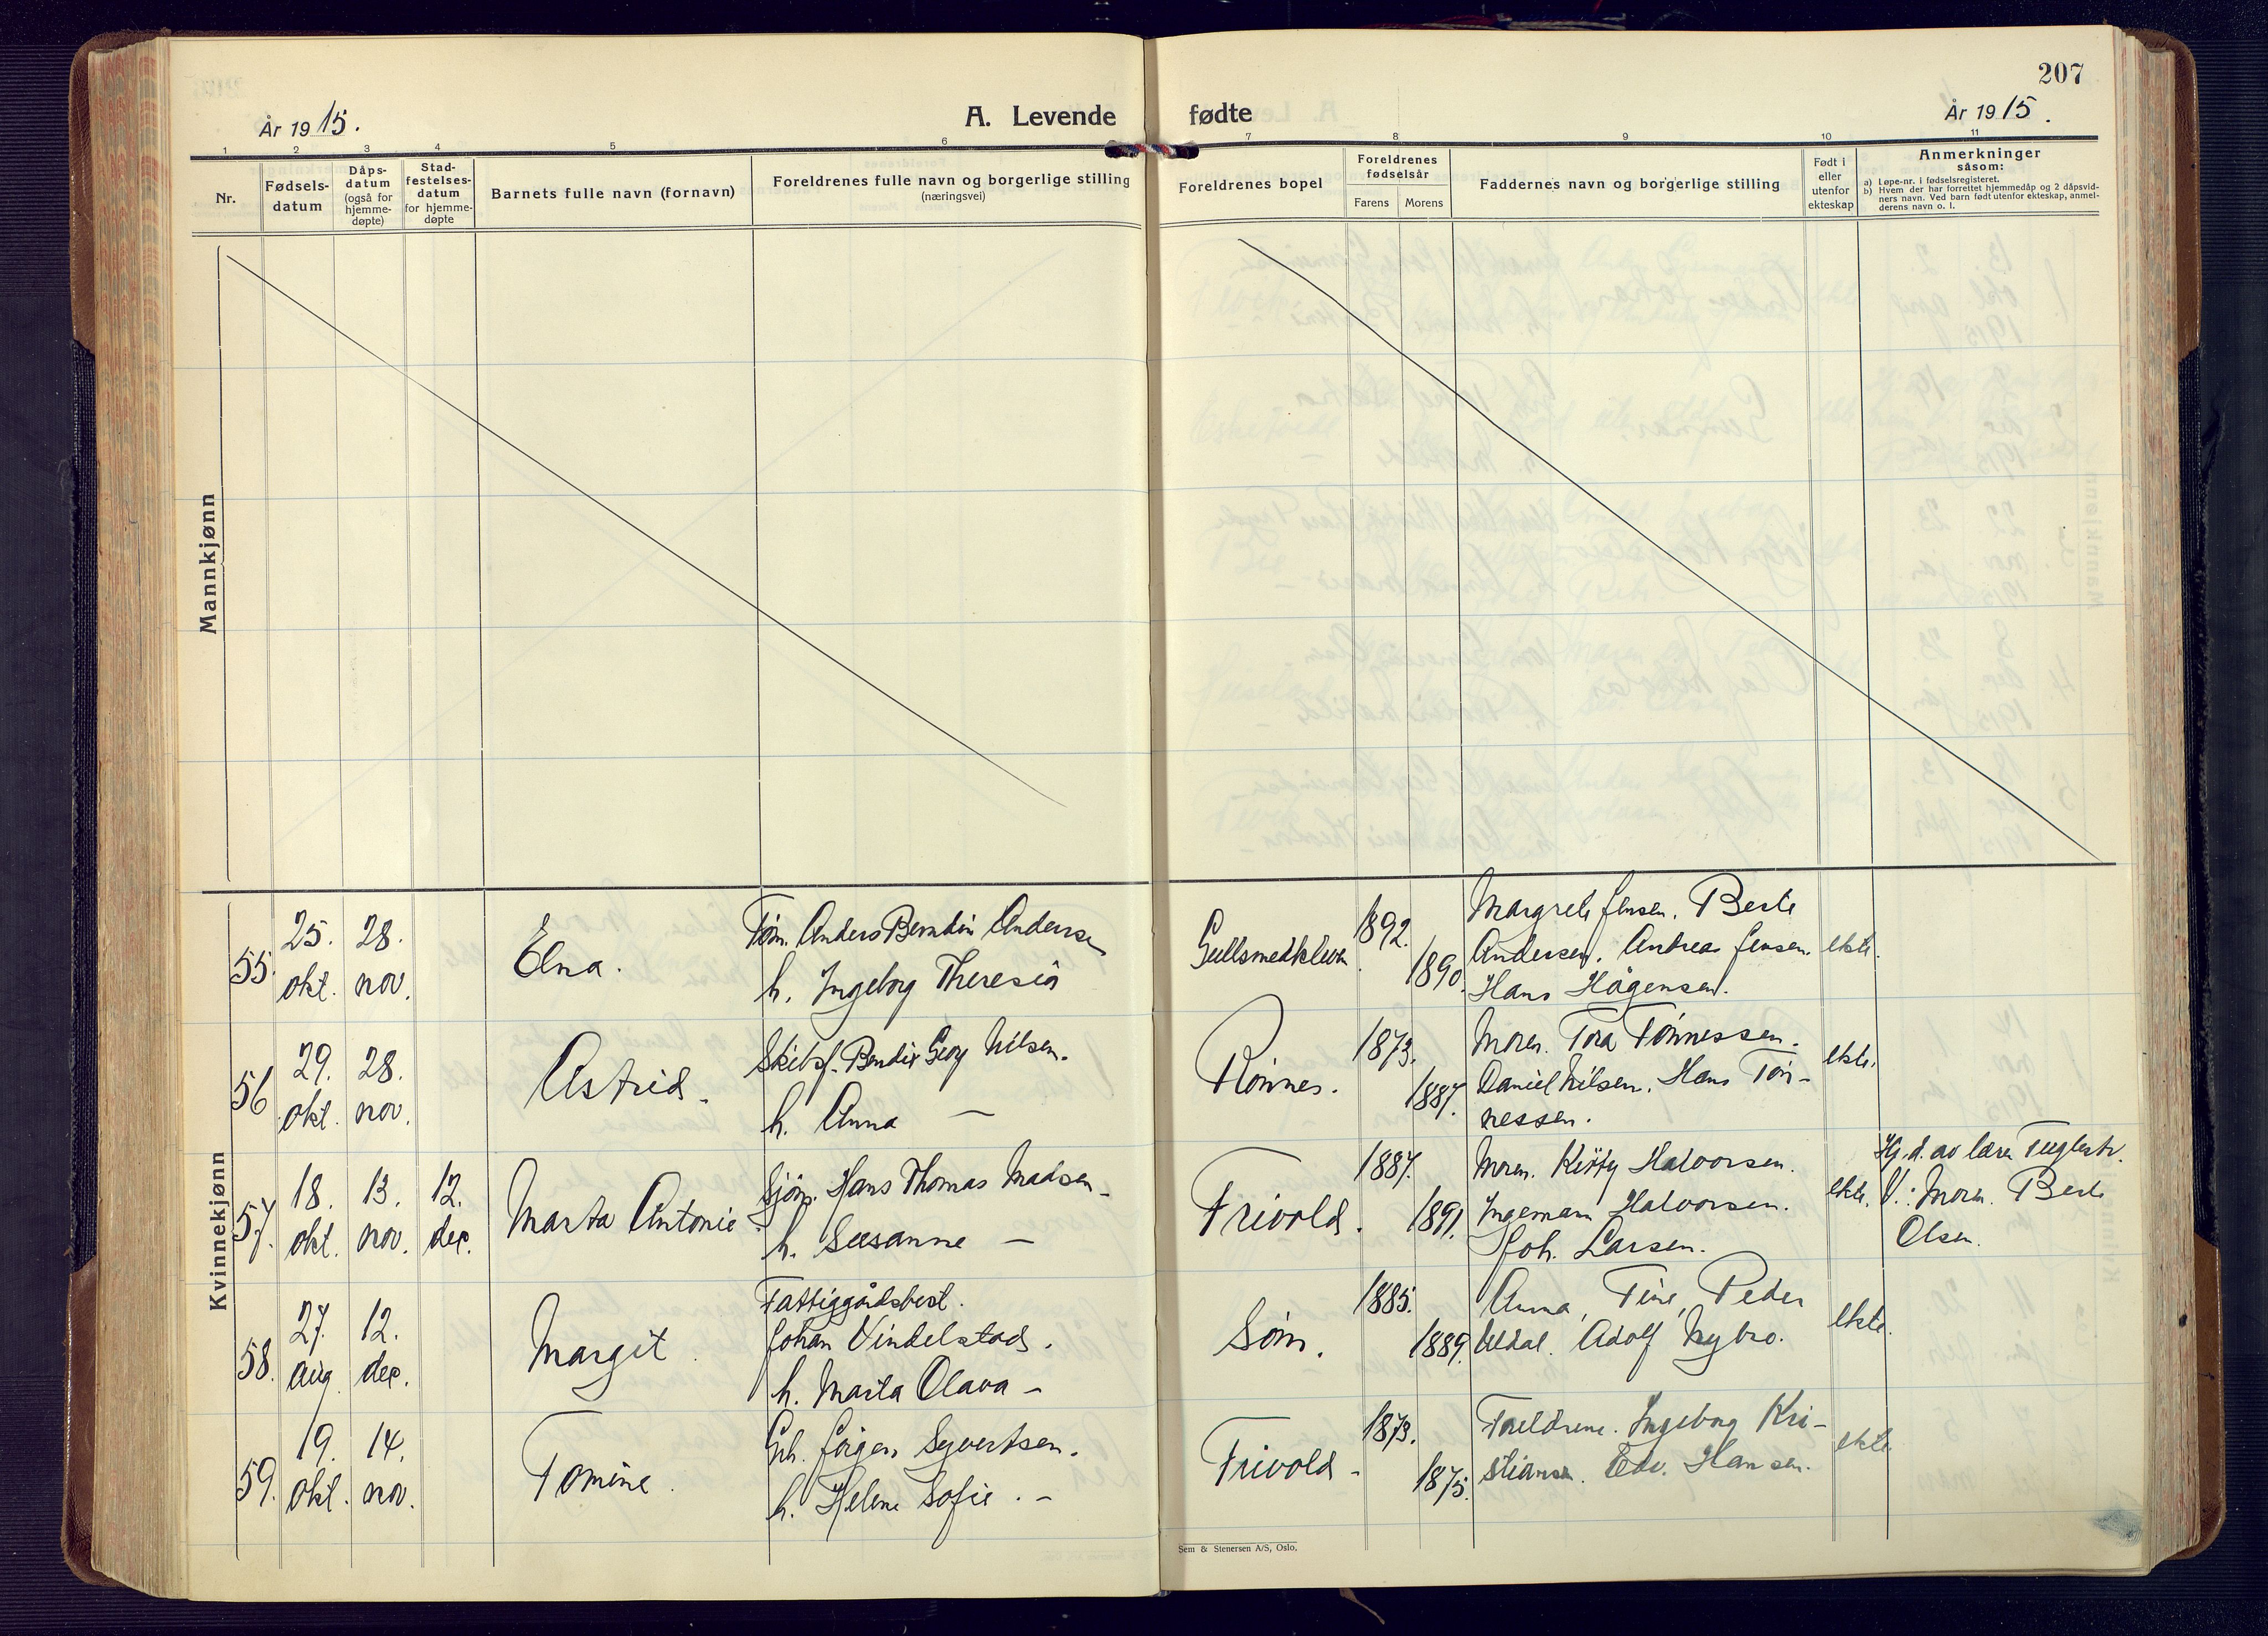 207
År 1915.
A. Levende
fødte
År 1915.
1 2 3 4 5 6 7 8 9 10 11
Nr.
Fødsels-
datum
Dåps-
datum
(også for
hjemme-
døpte)
Stad-
festelses-
datum
for hjemme-
døpte
Barnets fulle navn (fornavn)
Foreldrenes fulle navn og borgerlige stilling
(næringsvei)
Foreldrenes bopel
Foreldrenes
fødselsår
Farens Morens
Faddernes navn og borgerlige stilling
Født i
eller
utenfor
ekteskap
Anmerkninger
såsom:
a) Løpe-nr. i fødselsregisteret.
b) Hvem der har forrettet hjemmedåp og 2 dåpsvid-
ners navn. Ved barn født utenfor ekteskap, anmel-
derens navn o. l.
Mannkjønn
Kvinnekjønn
55.
25.
okt.
28.
nov.
Elna.
Tøm. Anders Berndin Andersen
h. Ingeborg Theresia
Gullsmedkleva.
1892.
1890.
Margrete Jensen. Berte
Andersen. Andreas Jensen.
Hans Hågensen.
ekte.
56
29.
okt.
28.
nov.
Astrid.
Skibsf. Bendix Georg Nilsen.
h. Anna –
Rønnes.
1873.
1887.
Moren. Tora Tønnessen.
Daniel Nilsen. Hans Tøn-
nessen.
ekte.
57.
18.
okt.
13.
nov.
12.
dec.
Marta Antonie
Sjøm. Hans Thomas Madsen.
h. Susanne –
Frivold.
1887.
1891.
Moren. Kitty Halvorsen.
Ingemann Halvorsen.
Joh. Larsen.
ekte.
Hj. d. av lærer
V.: Moren. Berte
Olsen.
58.
27.
aug.
12.
dec.
Margit.
Fattiggårdsbest.
Johan Vindelstad.
h. Marta Olava –
Søm.
1885.
1889.
Anna, Tine, Peder
Uldal. Adolf Nybro.
ekte.
59.
19.
okt.
14.
nov.
Tomine.
Grh. Jørgen Syvertsen.
h. Helene Sofie. –
Frivold –
1873.
1875.
Foreldrene. Ingeborg Kri-
stiansen. Edv. Hansen.
ekte.
Sem & Stenersen A/S, Oslo.